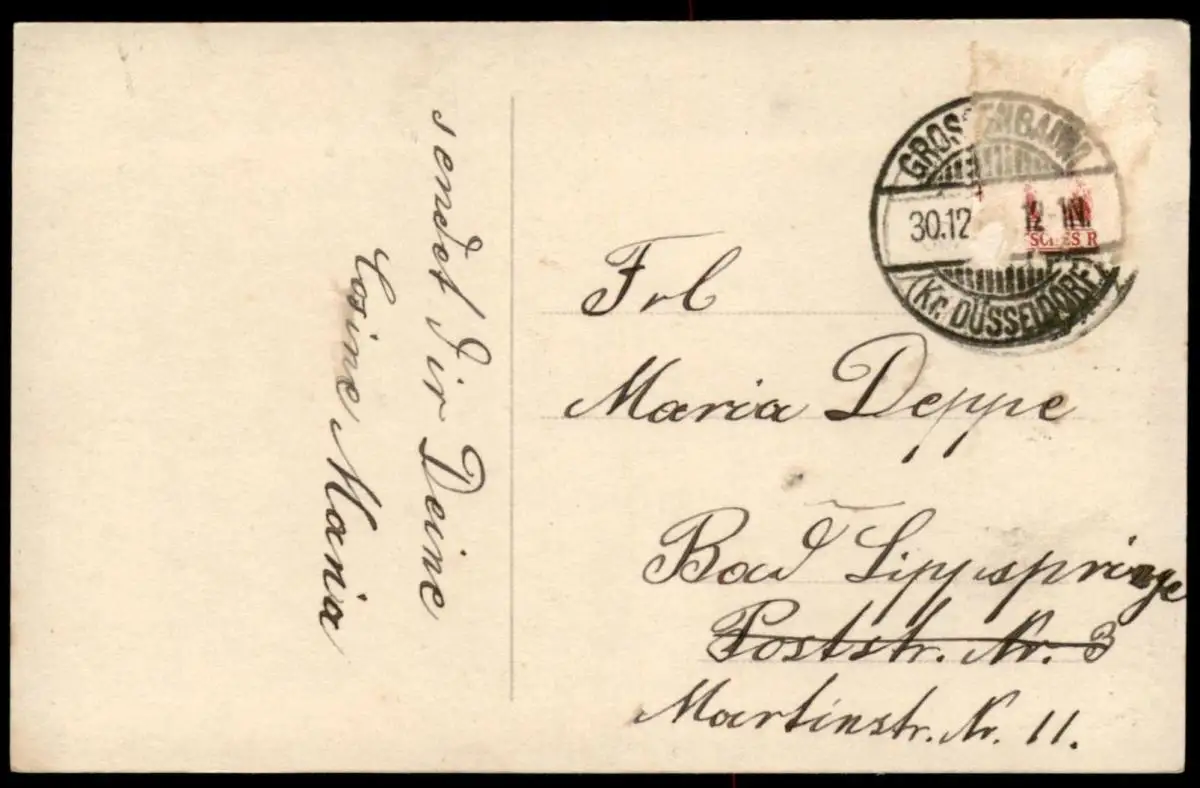 sendet dir Deine
Cosine Maria
GROSSENBAUM
30.12
12-1N.
SCHES R
(Kr. DÜSSELDORF)
Frl
Maria Deppe
Bad Lippspringe
Poststr. Nr. 3
Martinstr. Nr. 11.